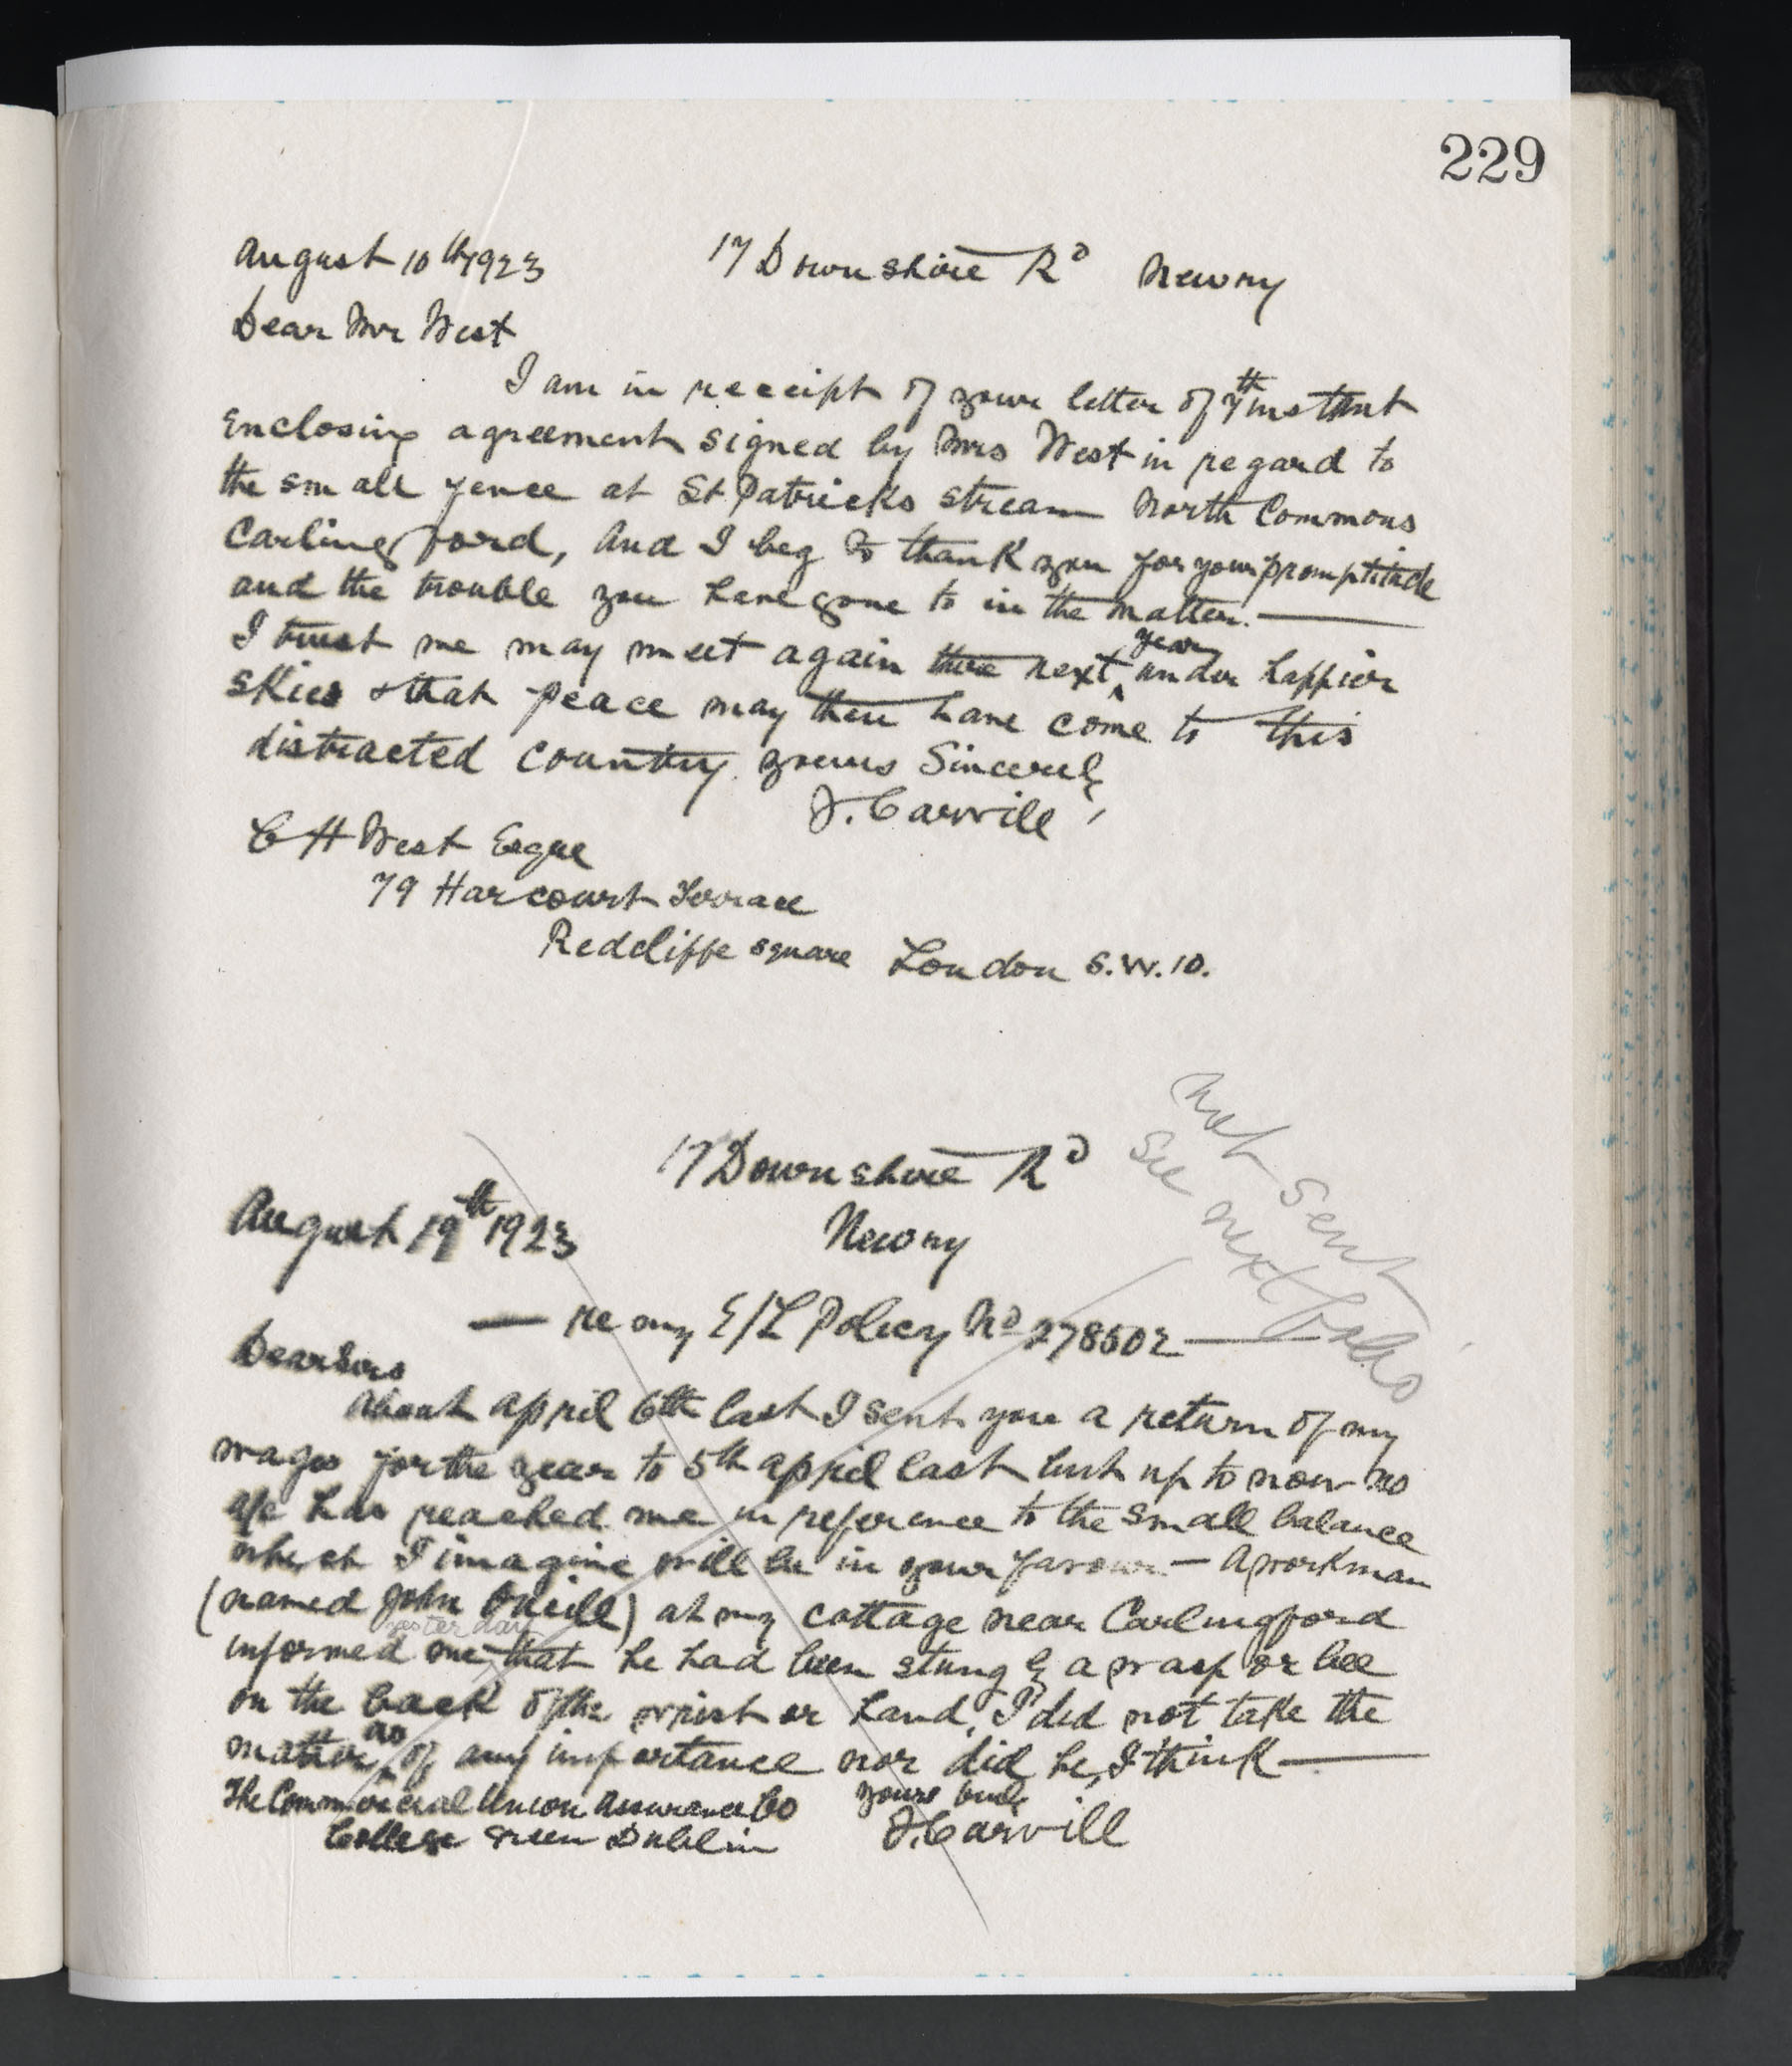 229
August 10th 1923 17 Downshire Rd Newry
Dear Mr West
I am in receipt of your letter of 7th instant
Enclosing agreement signed by Mrs West in regard to
the small fence at St Patricks stream North Commons
Carlingford, And I beg to thank you for your promptitude
and the trouble you have gone to in the matter. —
I trust we may meet again there next year under happier
skies & that peace may then have come to this
distracted country. yours Sincerely
F. Carvill
C H West Esque
79 Harcourt Terrace
Redcliffe square London S.W.10.
not sent
See next folio
17 Downshire Rd
August 19th 1923 Newry
— re my E/L Policy No 278502 —
Dear Sirs
About April 6th last I sent you a return of my
wages for the year to 5th April last but up to now no
a/c has reached me in reference to the small balance
which I imagine will be in your favour — A workman
(named John O'Neill) at my cottage near Carlingford
yesterday
informed me that he had been stung by a wasp or bee
on the back of the wrist or hand, I did not take the
matter as of any importance nor did he, I think —
The Commercial Union Assurance Co yours truly
College Green Dublin F. Carvill